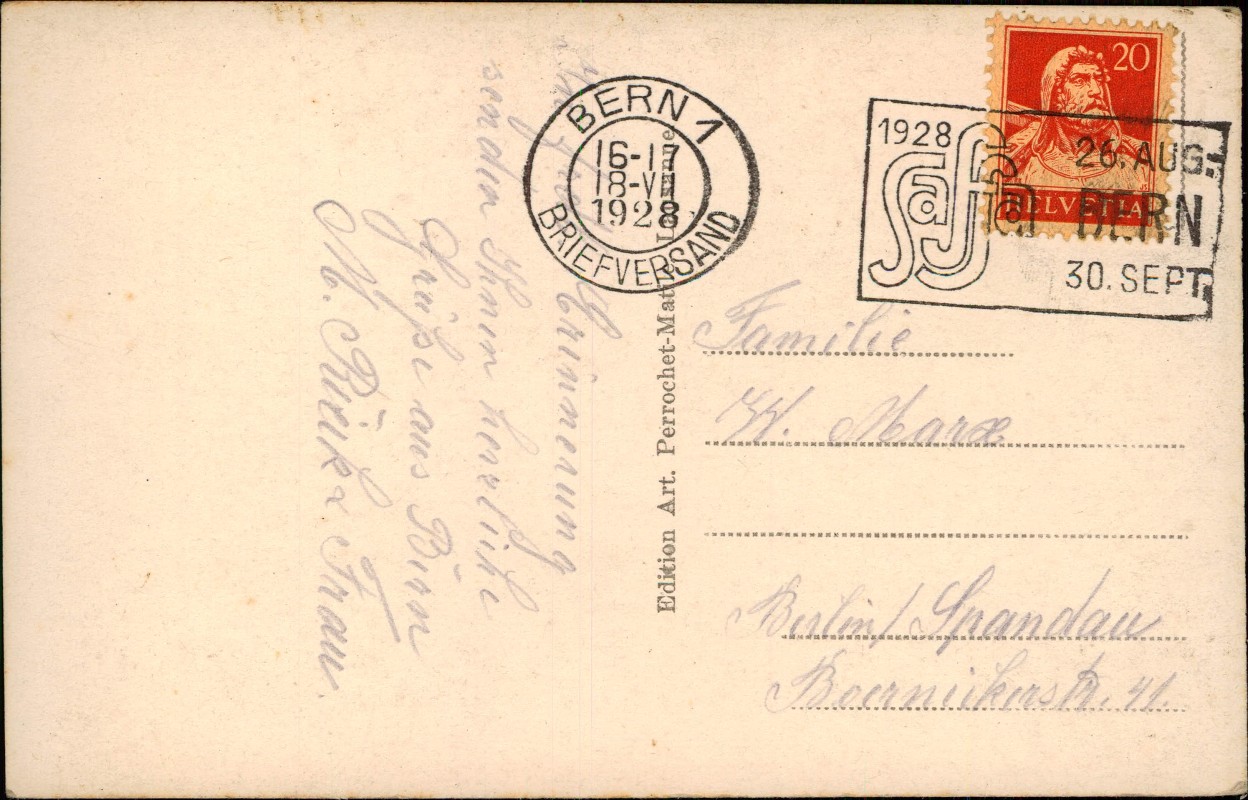 Erinnerung
senden Ihnen herzliche
Grüße aus Bern
M. Rieck & Frau.
BERN 1
16-17
18-VII
1928
BRIEFVERSAND
Edition Art. Perrochet-Matile Lausanne
20
HELVETIA
1928
Saffa
26. AUG.-
BERN
30. SEPT.
Familie
W. Marx
Berlin/Spandau
str. 41.